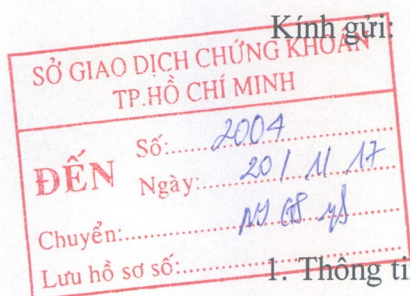 Kính gửi:
SỞ GIAO DỊCH CHỨNG KHOÁN
TP.HỒ CHÍ MINH
ĐẾN
Số:.....2004
Ngày:.....20/11/17
Chuyển:.....
Lưu hồ sơ số:.....
1. Thông ti